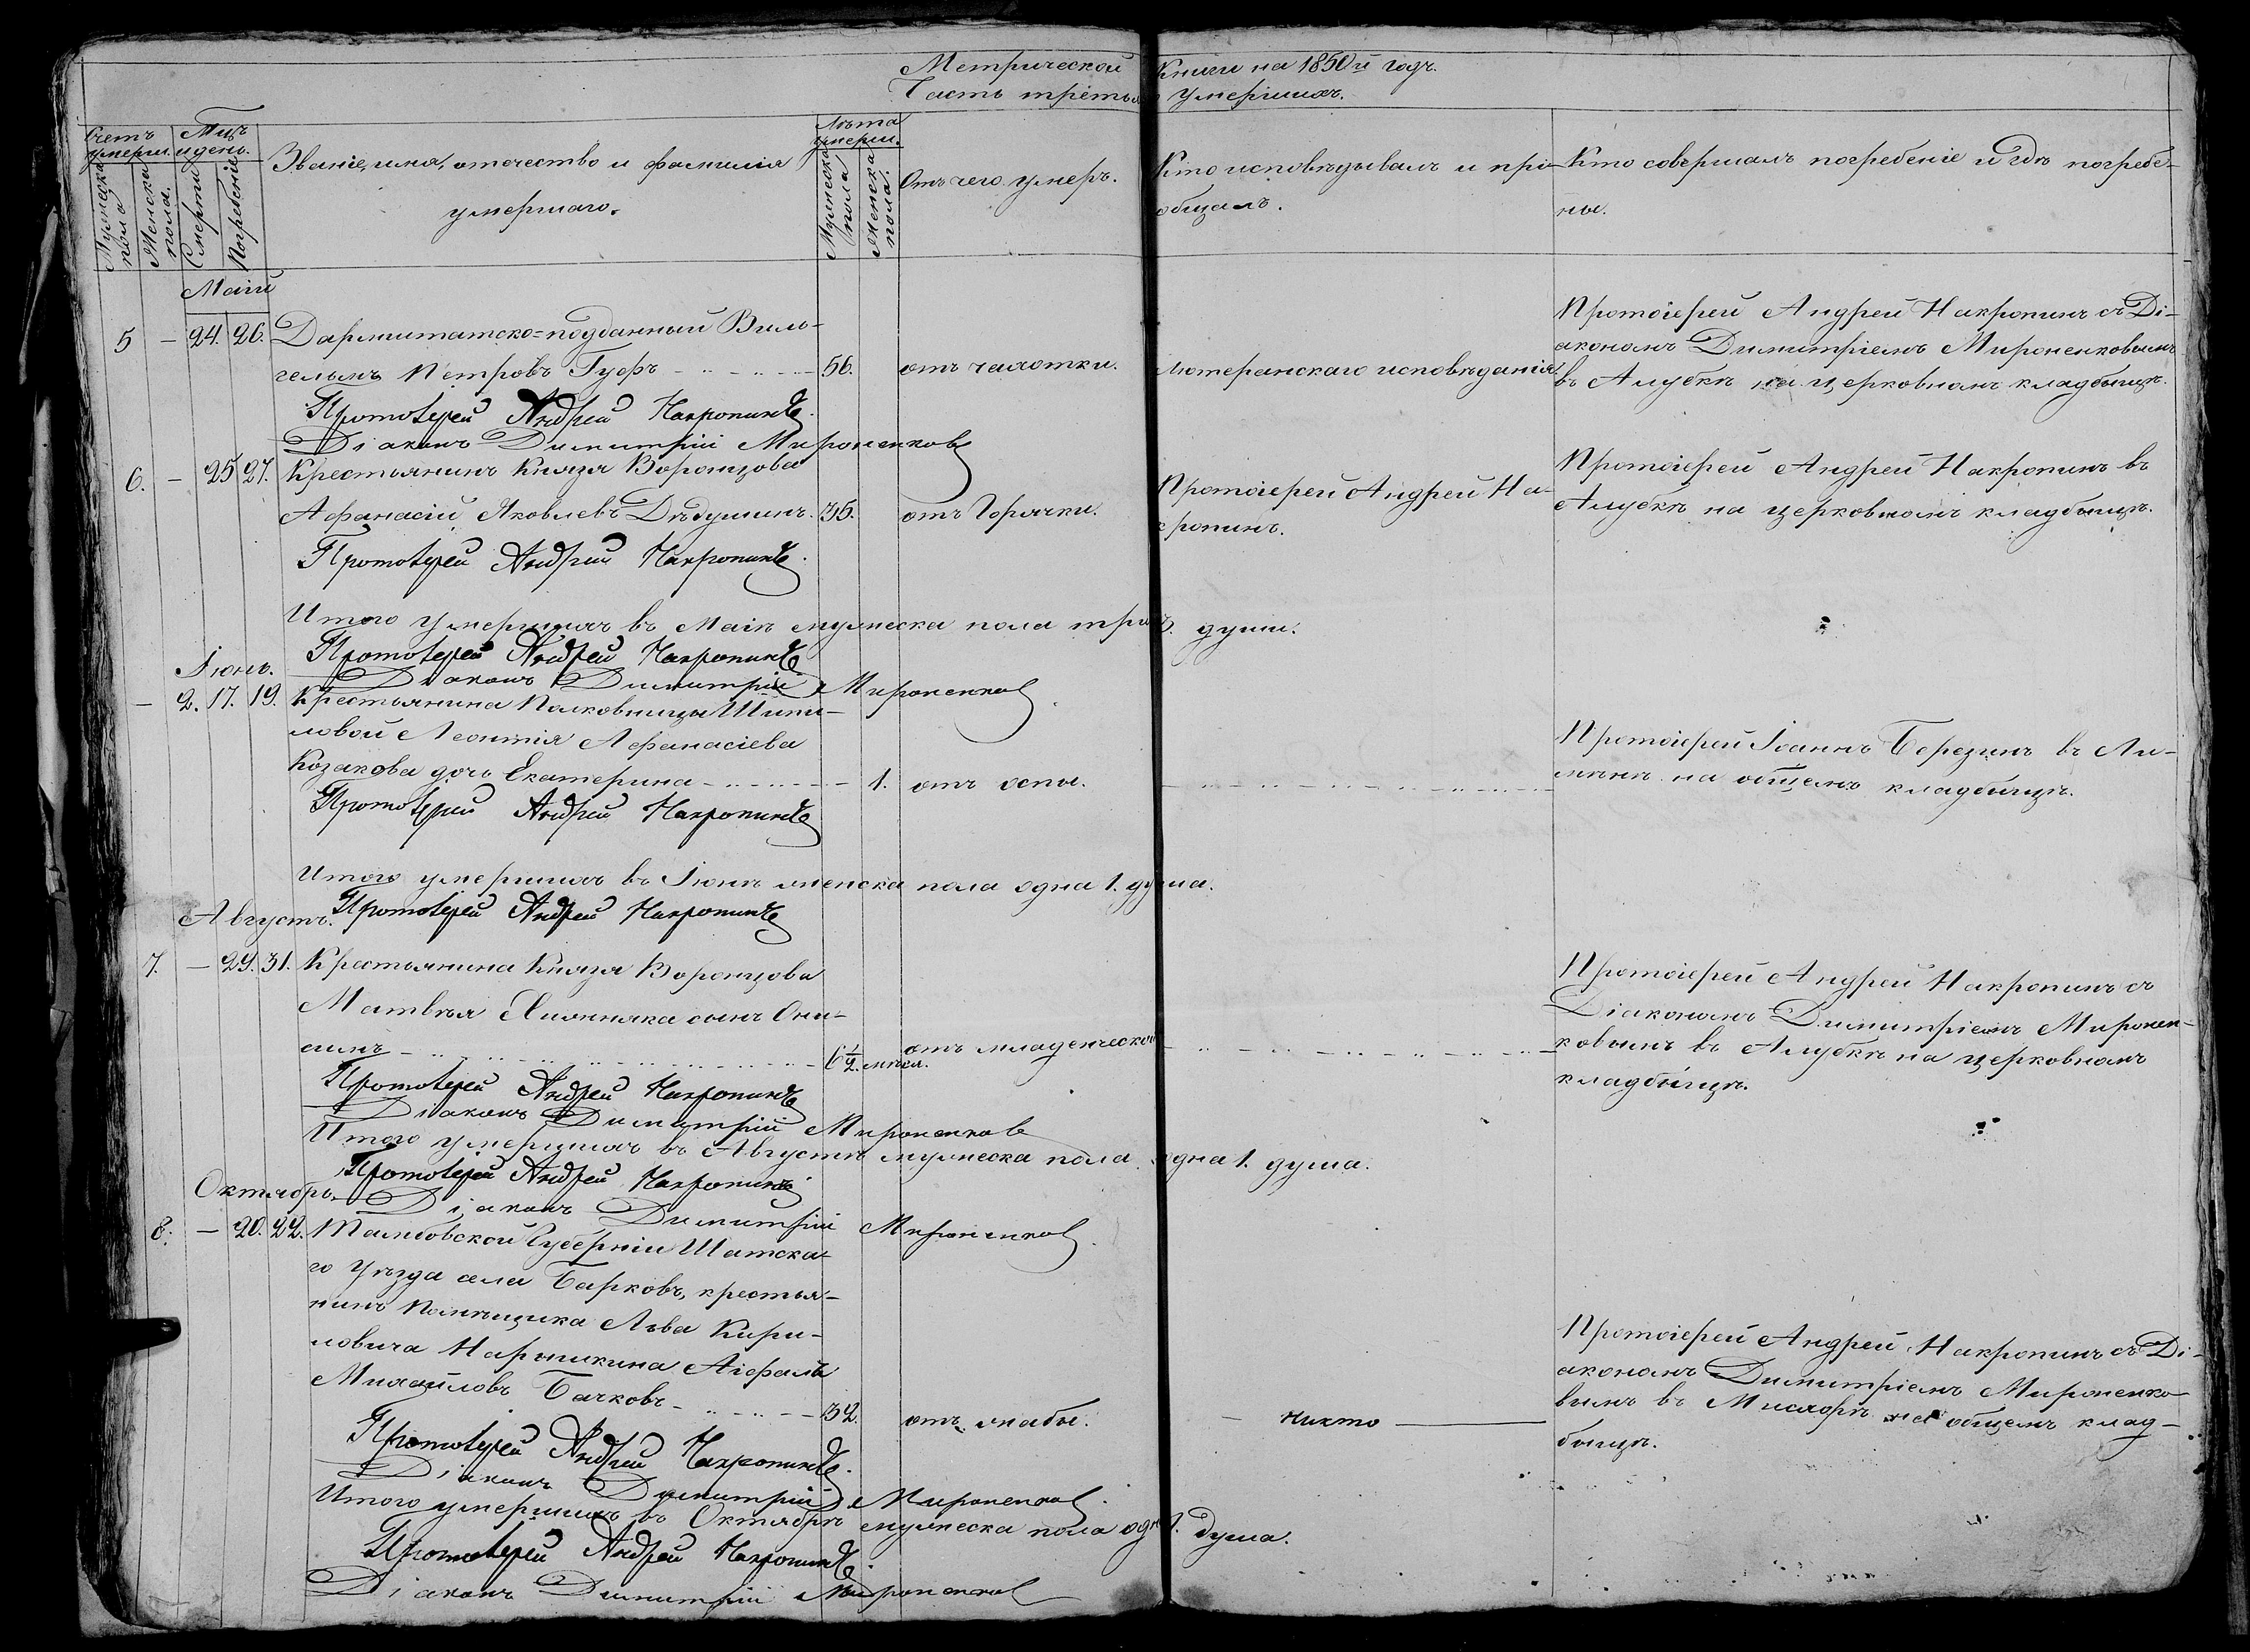 Метрической Книги на 1850й годъ.
Часть третья умершихъ.
Счетъ умерш.
Мужеска пола
Женска пола.
Мцъ и день.
Смерти
Погребенія
Званіе, имя, отечество и фамилія
умершаго.
Лѣта умерш.
Мужеска пола
Женска пола.
Отъ чего умеръ.
Кто исповѣдывалъ и прі-
общалъ.
Кто совершалъ погребеніе и гдѣ погребе-
ны.
Маій
5 — 24. 26. Дармштатско=подданный Виль-
гельмъ Петровъ Гуфъ 56. отъ чахотки. лютеранскаго исповѣданія.
Протоіерей Андрей Накропинъ съ Ді-
акономъ Димитріемъ Мироненковымъ
въ Алубкѣ на церковномъ кладбищѣ.
Протоіерей Андрей Накропинъ.
Діаконъ Димитрій Мироненковъ
6. — 25 27. Крестьянинъ Князя Воронцова
Афанасій Яковлевъ Дѣдушинъ. 35. отъ Горячки.
Протоіерей Андрей На-
кропинъ.
Протоіерей Андрей Накропинъ въ
Алубкѣ на церковномъ кладбищѣ.
Протоіерей Андрей Накропинъ.
Итого умершихъ въ Маіѣ мужеска пола три 3. души.
Протоіерей Андрей Накропинъ
Діаконъ Димитрій Мироненковъ.
Іюнь.
— 2. 17. 19. Крестьянина Полковницы Шипи-
ловой Леонтія Афанасіева
Козакова дочь Екатерина 1. отъ оспы.
Протоіерей Іоаннъ Березинъ въ Ли-
менѣ на общемъ кладбищѣ.
Протоіерей Андрей Накропинъ
Итого умершихъ въ Іюнѣ женска пола одна 1. душа.
Протоіерей Андрей Накропинъ
Августъ.
7. — 29. 31. Крестьянина Князя Воронцова
Матвѣя Хижняка сынъ Они-
симъ 6 1/2 мѣся. отъ младенческой
Протоіерей Андрей Накропинъ съ
Діакономъ Димитріемъ Миронен-
ковымъ въ Алубкѣ на церковномъ
кладбищѣ.
Протоіерей Андрей Накропинъ
Діаконъ Димитрій Мироненковъ
Итого умершихъ въ Августѣ мужеска пола одна 1. душа.
Протоіерей Андрей Накропинъ
Діаконъ Димитрій Мироненковъ.
Октябрь.
8. — 20. 22. Тамбовской Губерніи Шатска-
го уѣзда села Барковъ, крестья-
нинъ помѣщика Льва Кири-
ловича Нарышкина Аіфалъ
Михайловъ Бачковъ 32. отъ жабы. — никто —
Протоіерей Андрей Накропинъ съ Ді-
акономъ Димитріемъ Мироненко-
вымъ въ Мисхорѣ на общемъ клад-
бищѣ.
Протоіерей Андрей Накропинъ.
Діаконъ Димитрій Мироненковъ.
Итого умершихъ въ Октябрѣ мужеска пола одна 1. душа.
Протоіерей Андрей Накропинъ.
Діаконъ Димитрій Мироненковъ